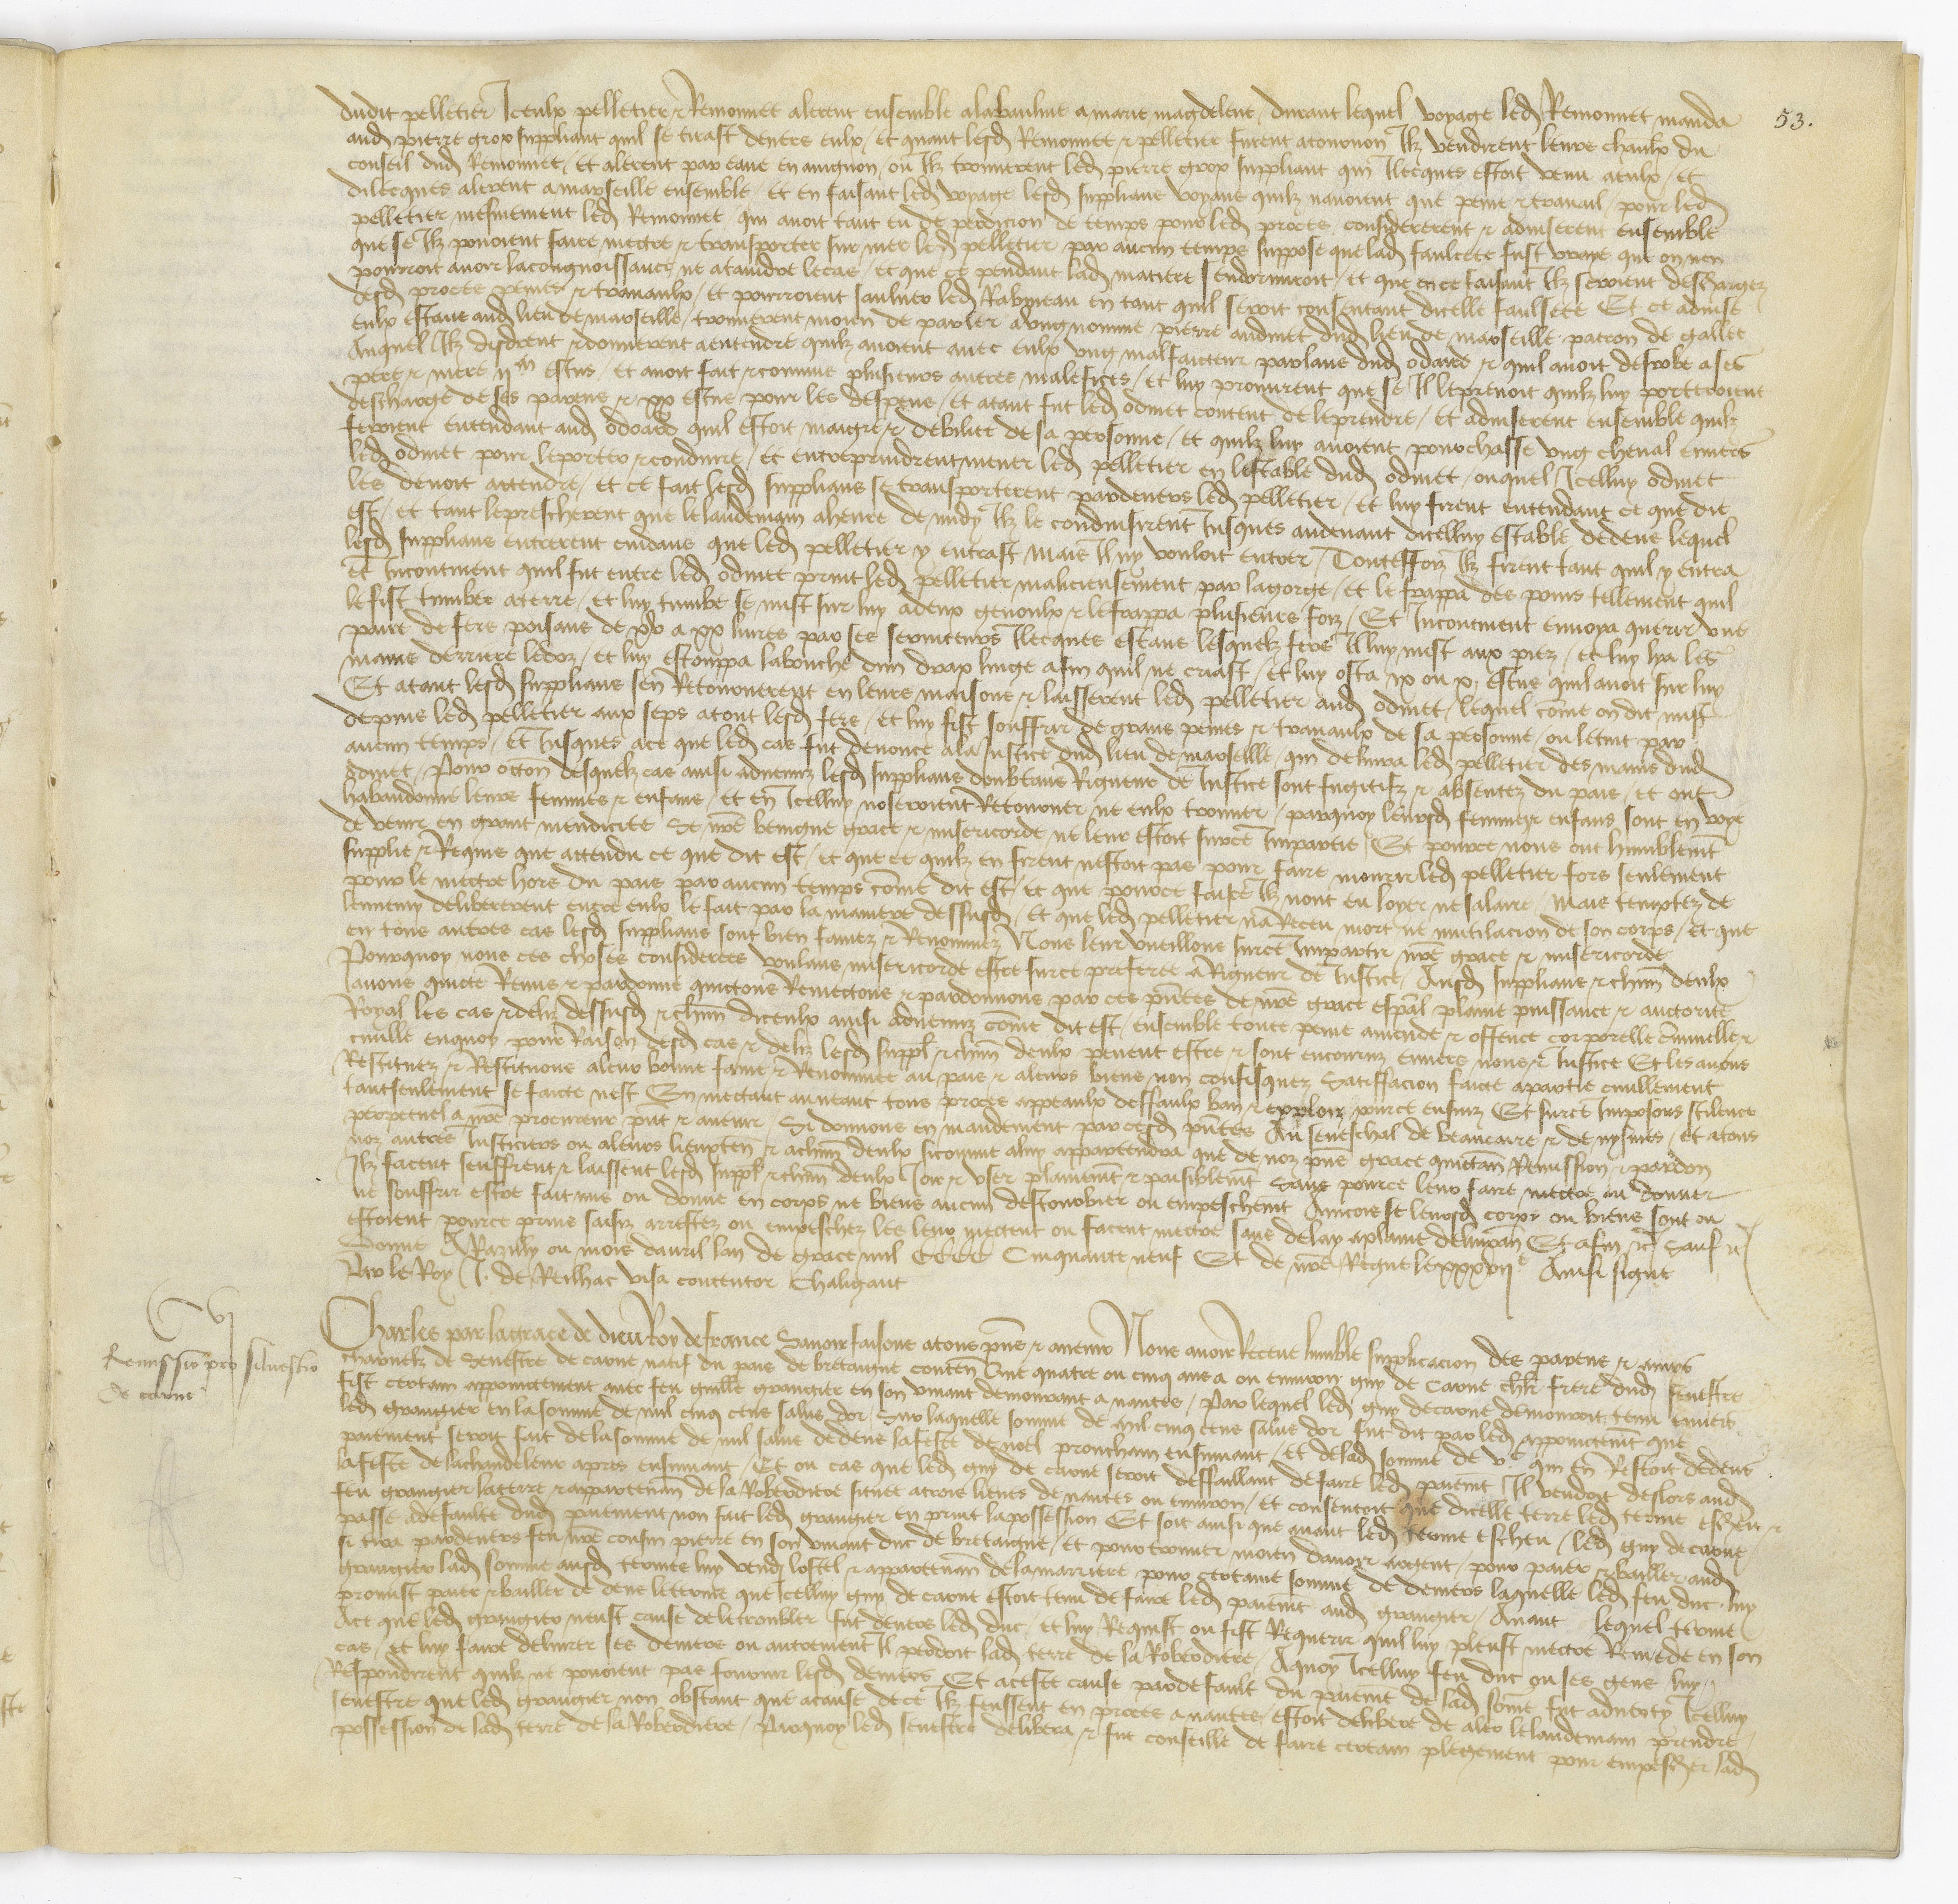 53.
dudit pelletier Iceulx pelletier & Remonnet alerent ensemble alabaulme a marie magdelene / durant lequel voyage led Remonnet manda
aud pierre grox suppliant quil se tirast devers eulx / et quant lesd Remonnet & pelletier furent Ilz vendirent leurs chaulx du
conseil dud Remonnet / et alerent par eaue en avignon / ou Ilz trouverent led pierre grox suppliant qui Illecques estoit venu aeulx / et
dilecques alerent a marseille ensemble / et en faisant led voyage lesd supplians voyans quilz navoient que peine & travail / pour led
pelletier / mesmement led Remonnet qui avoit tant eu de perdicion de temps pour led proces / considererent & adviserent ensemble
que se Ilz povoient faire mectre & transporter sur mer led pelletier par aucun temps suppose que lad faulcete fust vraye que on nen
pourroit avoir lacongnoissance ne ataindre lecas / et que ce pendant lad matiere sendormiroit / et que en ce faisant Ilz seroient deschargez
desd proces peines & travaulx / et pourroient saulver led Rabineau en tant quil seroit consentant dicelle faulsete Et ce advise
eulx estans aud lieu de marseille / trouverent moien de parler a ung nomme pierre audinet dud lieu de marseille patron de gallee
Auquel Ilz disdrent & donnerent aentendre quilz avoient avec eulx ung malfaicteur parlant dud odart & quil avoit desrobe a ses
pere & mere ijm escus / et avoit fait & commis plusieurs autres malefices / et luy promirent que se Il leprenoit quilz luy porteroient
descharge de ses parens & xx escus pour les despens / et atant fut led odinet content de leprendre / et adviserent ensemble quilz
feroient entendant aud odoard quil estoit maigre & debilite de sa personne / et quilz luy avoient pourchasse ung cheval envers
led odinet pour leporter & conduire / et entreprindrent mener led pelletier en lestable dud odinet / ouquel Icelluy odinet
les devoit actendre / et ce fait lesd supplians se transporterent pardevers led pelletier / et luy firent entendant ce que dit
est / et tant leprescherent que lelandemain aheure de midy Ilz le conduisirent Jusques audevant dicelluy estable dedens lequel
lesd supplians entrerent cuidans que led pelletier y entrast / mais Il ny vouloit entrer / Touteffoiz Ilz firent tant quil y entra
et Incontinent quil fut entre led odinet print led pelletier malicieusement par lagorge / et le frappa des poins tellement quil
le fist tumber aterre / et luy tumbe se mist sur luy adeux genoulx & lefrappa plusieurs foiz / Et Incontinent envoya querir une
paire de fers poisans de xv a xx livres par ses serviteurs Illecques estans lesquelz fers Il luy mist aux piez / et luy lya les
mains derriere ledoz / et luy estouppa labouche dun drap linge afin quil ne criast / et luy osta ix ou x escus quil avoit sur luy
Et atant lesd supplians sen Retournerent en leurs maisons & laisserent led pelletier aud odinet / lequel come on dit mist
depuis led pelletier aux seps atout lesd fers / et luy fist souffrir de grans peines & travaulx de sa personne / ou letint par
aucun temps / et Jusques ace que led cas fut denonce ala Justice dud lieu de marseille / qui delivra led pelletier des mains dud
odinet / Pour occon desquelz cas ainsi advenuz lesd supplians doubtans Rigueur de Justice sont fugitifz & absentez du pais / et ont
habandonne leurs femmes & enfans / et en Icelluy noseroient Retourner ne eulx trouver / parquoy leursd femmes & enfans sont en voye
de venir en grant mendicite Se nre benigne grace & misericorde ne leur estoit surce Impartie / Et pource nous ont humblemt
supplie & Requis que actendu ce que dit est / et que ce quilz en firent nestoit pas pour faire mourir led pelletier fors seulement
pour le mectre hors du pais par aucun temps come dit est / et que pource faire Ilz nont eu loyer ne salaire / mais temptez de
lennemy delibererent entre eulx le fait par la maniere dessusd / Et que led pelletier na Receu mort ne mutilacion de son corps / et que
en tous autres cas lesd supplians sont bien famez & Renommez Nous leur vueillons surce Impartir nre grace & misericorde
Pourquoy nous ces choses considerees voulans misericorde estre surce preferee a Rigueur de Justice / Ausd supplians & chun deulx
avons quicte Remis & pardonne quictons Remectons & pardonnons par ces pntes de nre grace espal plaine puissance & auctorite
Royal les cas & deliz dessusd & chun diceulx ainsi advenuz come dit est / ensemble toute peine amende & offence corporelle criminelle &
civille enquoy pour Raison desd cas & deliz lesd suppl & chun deulx pevent estre & sont encouruz envers nous & Justice Et les avons
Restituez & Restituons aleur bonne fame & Renommee au pais & aleurs biens non confisquez Satisfacion faicte apartie civillement
tantseulement se faicte nest En mectant auneant tous proces appeaulx deffaulx ban & exploiz pource ensuiz Et surce Imposons silence
perpetuel a nre procureur pnt & avenir / Si donnons en mandement par cesd pntes Au seneschal de beaucaire & de nysmes / et atous
noz autres Justiciers ou aleurs lieuxten & achun deulx sicomme aluy appartendra que de noz pns grace quictan Remission & pardon
Ilz facent seuffrent & laissent lesd suppl & chun deulx Joir & user plainemt & paisiblemt Sans pource leur faire mectre ou donner
ne souffrir estre fait mis ou donne en corps ne biens aucun destourbier ou empeschemt Aincois se leursd corps ou biens sont ou
estoient pource prins saisiz arrestez ou empeschez les leur mectent ou facent mectre sans delay aplaine delivran Et afin &c Sauf &c
Donne A Razilly ou mois davril lan de grace mil CCCC Cinquante neuf Et de nre Regne lexxxvije Ainsi signe
Par le Roy J. de Reilhac visa contentor Chaligaut
Cvj
Remissio pro silvestro
de carne
Charles par la grace de dieu Roy de france Savoir faisons atous pns & avenir Nous avoir Receue humble supplicacion des parens & amys
charnelz de Senestre de carne natif du pais de bretaigne conten Que quatre ou cinq ans a ou environ guy de Carne chlr frere dud senestre
fist certain appoinctement avec feu guille grangier en son vivant demourant a nantes / Par lequel led guy decarne demouroit tenu envers
led grangier en lasomme de mil cinq cens salus dor Sur laquelle somme de mil cinq cens salus dor fut dit par led appoinctemt que
paiement seroit fait delasomme de mil salus dedens lafeste de noel prouchain ensuivant / et delad somme de vc qui en Restoit dedens
lafeste delachandeleur apres ensuivant / Et ou cas que led guy de carne seroit deffaillant defaire led paiemt Il vendoit deslors aud
feu grangier laterre & appartenan de la Roberdiere située atrois lieues de nantes ou environ / et consentoit que dicelle terre led terme escheu &
passe adefaulte dud paiement non fait led grangier en print lapossession Et soit ainsi que avant led terme escheu / led guy decarne
se tira pardevers feu nre cousin pierre en son vivant duc de bretaigne / et pour trouver moien davoir argent / pour paier & bailler aud
grangier lad somme ausd termes luy vend lostel & appartenan delamarriere pour certaine somme de deniers laquelle led feu duc luy
promist paier & bailler de dens leterme que Icelluy guy de carne estoit tenu de faire led paiemt aud grangier / Avant lequel terme
Ace que led grangier neust cause deletroubler fut devers led duc / et luy Requist ou fist Requerir quil luy pleust mectre Remede en son
cas / et luy faire delivrer ses deniers ou autrement Il perdoit lad terre de la Roberdiere / Aquoy Icelluy feu duc ou ses gens luy
Respondirent quilz ne povoient pas fournir lesd deniers Et aceste cause pardefault du paiemt de lad some fut adverty Icelluy
senestre que led grangier non obstant que acause dece Ilz feussent en proces a nantes / estoit delibere de aler lelandemain prendre
possession de lad terre de la Roberdiere / Parquoy led senestre delibera & fut conseille de faire certain plegement pour empescher lad